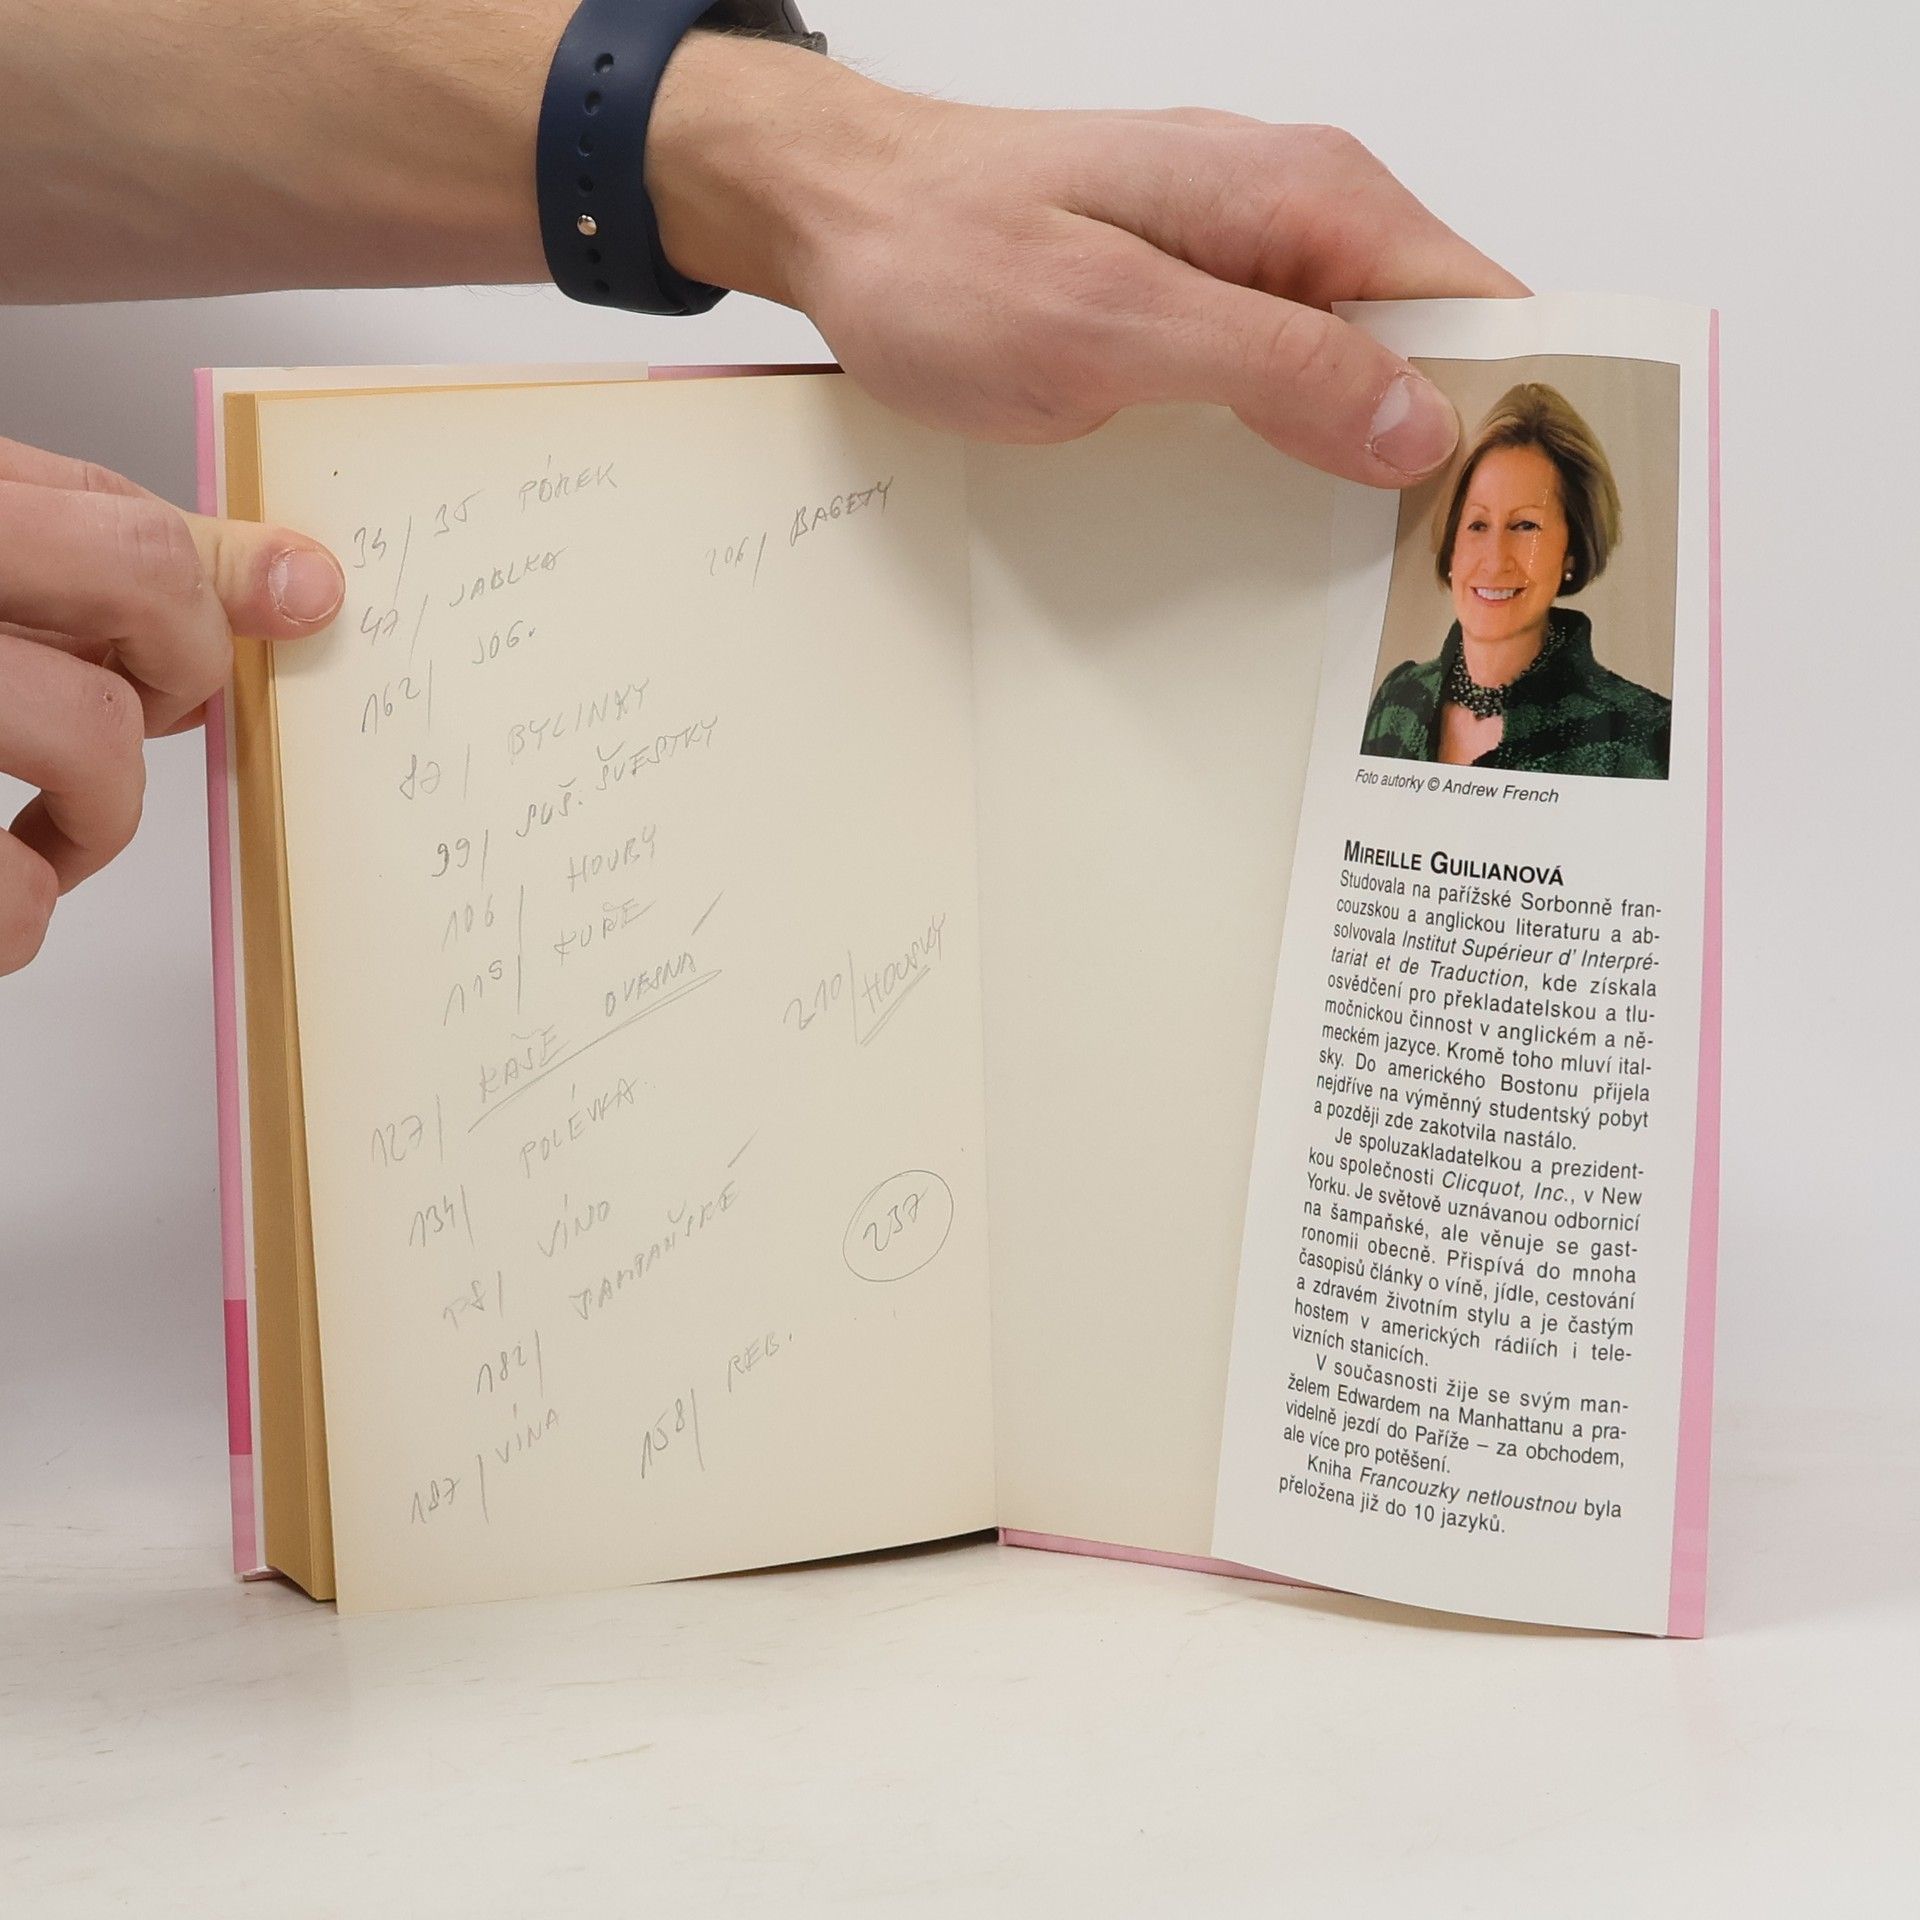 34/ 35 PÓREK
206/ BAGETY
47/ JABLKA
162/ JOG.
87/ BYLINKY
99/ SUŠ. ŠVESTKY
106/ HOUBY
115/ KUŘE
KAŠE OVESNÁ
210/ HOUSKY
127/ POLÉVKA
134/ VÍNO
ŠAMPAŇSKÉ
237
182/
187/ VÍNA
158/ REB.
Foto autorky © Andrew French
MIREILLE GUILIANOVÁ
Studovala na pařížské Sorbonně fran-
couzskou a anglickou literaturu a ab-
solvovala Institut Supérieur d' Interpré-
tariat et de Traduction, kde získala
osvědčení pro překladatelskou a tlu-
močnickou činnost v anglickém a ně-
meckém jazyce. Kromě toho mluví ital-
sky. Do amerického Bostonu přijela
nejdříve na výměnný studentský pobyt
a později zde zakotvila nastálo.
Je spoluzakladatelkou a prezident-
kou společnosti Clicquot, Inc., v New
Yorku. Je světově uznávanou odbornicí
na šampaňské, ale věnuje se gast-
ronomii obecně. Přispívá do mnoha
časopisů články o víně, jídle, cestování
a zdravém životním stylu a je častým
hostem v amerických rádiích i tele-
vizních stanicích.
V současnosti žije se svým man-
želem Edwardem na Manhattanu a pra-
videlně jezdí do Paříže – za obchodem,
ale více pro potěšení.
Kniha Francouzky netloustnou byla
přeložena již do 10 jazyků.